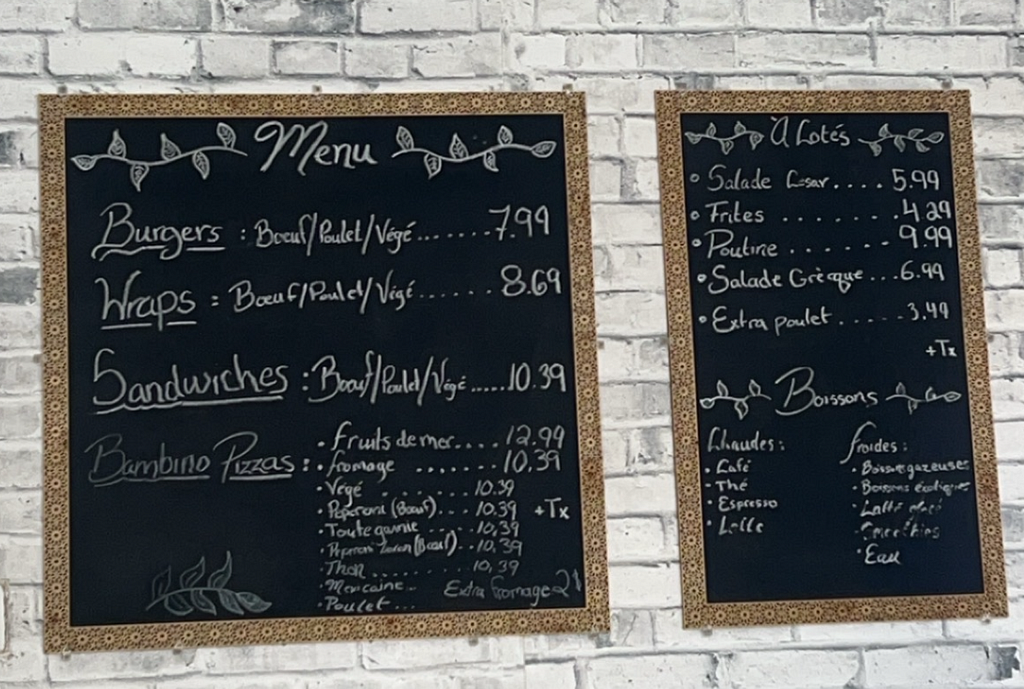 Menu
Burgers : Boeuf/Poulet/Végé.......7.99
Wraps : Boeuf/Poulet/Végé.......8.69
Sandwiches : Boeuf/Poulet/Végé.....10.39
Bambino Pizzas :
• fruits de mer....12.99
• fromage .......10.39
• Végé ........10.39
• Peperoni (Boeuf)...10.39
+Tx
• Toute garnie ....10,39
• Peperoni (Boeuf)..10,39
• Thon ........10,39
• Mexicaine...
Extra fromage 2$
• Poulet...
À Cotés
• Salade Cesar....5.99
• Frites ........4.29
• Poutine .......9.99
• Salade Grècque...6.99
• Extra poulet .....3.49
+Tx
Boissons
Chaudes :
• Café
• Thé
• Espresso
• Latte
froides :
• Boissons gazeuses
• Boissons
• Latte glacé
• Smoothies
• Eau